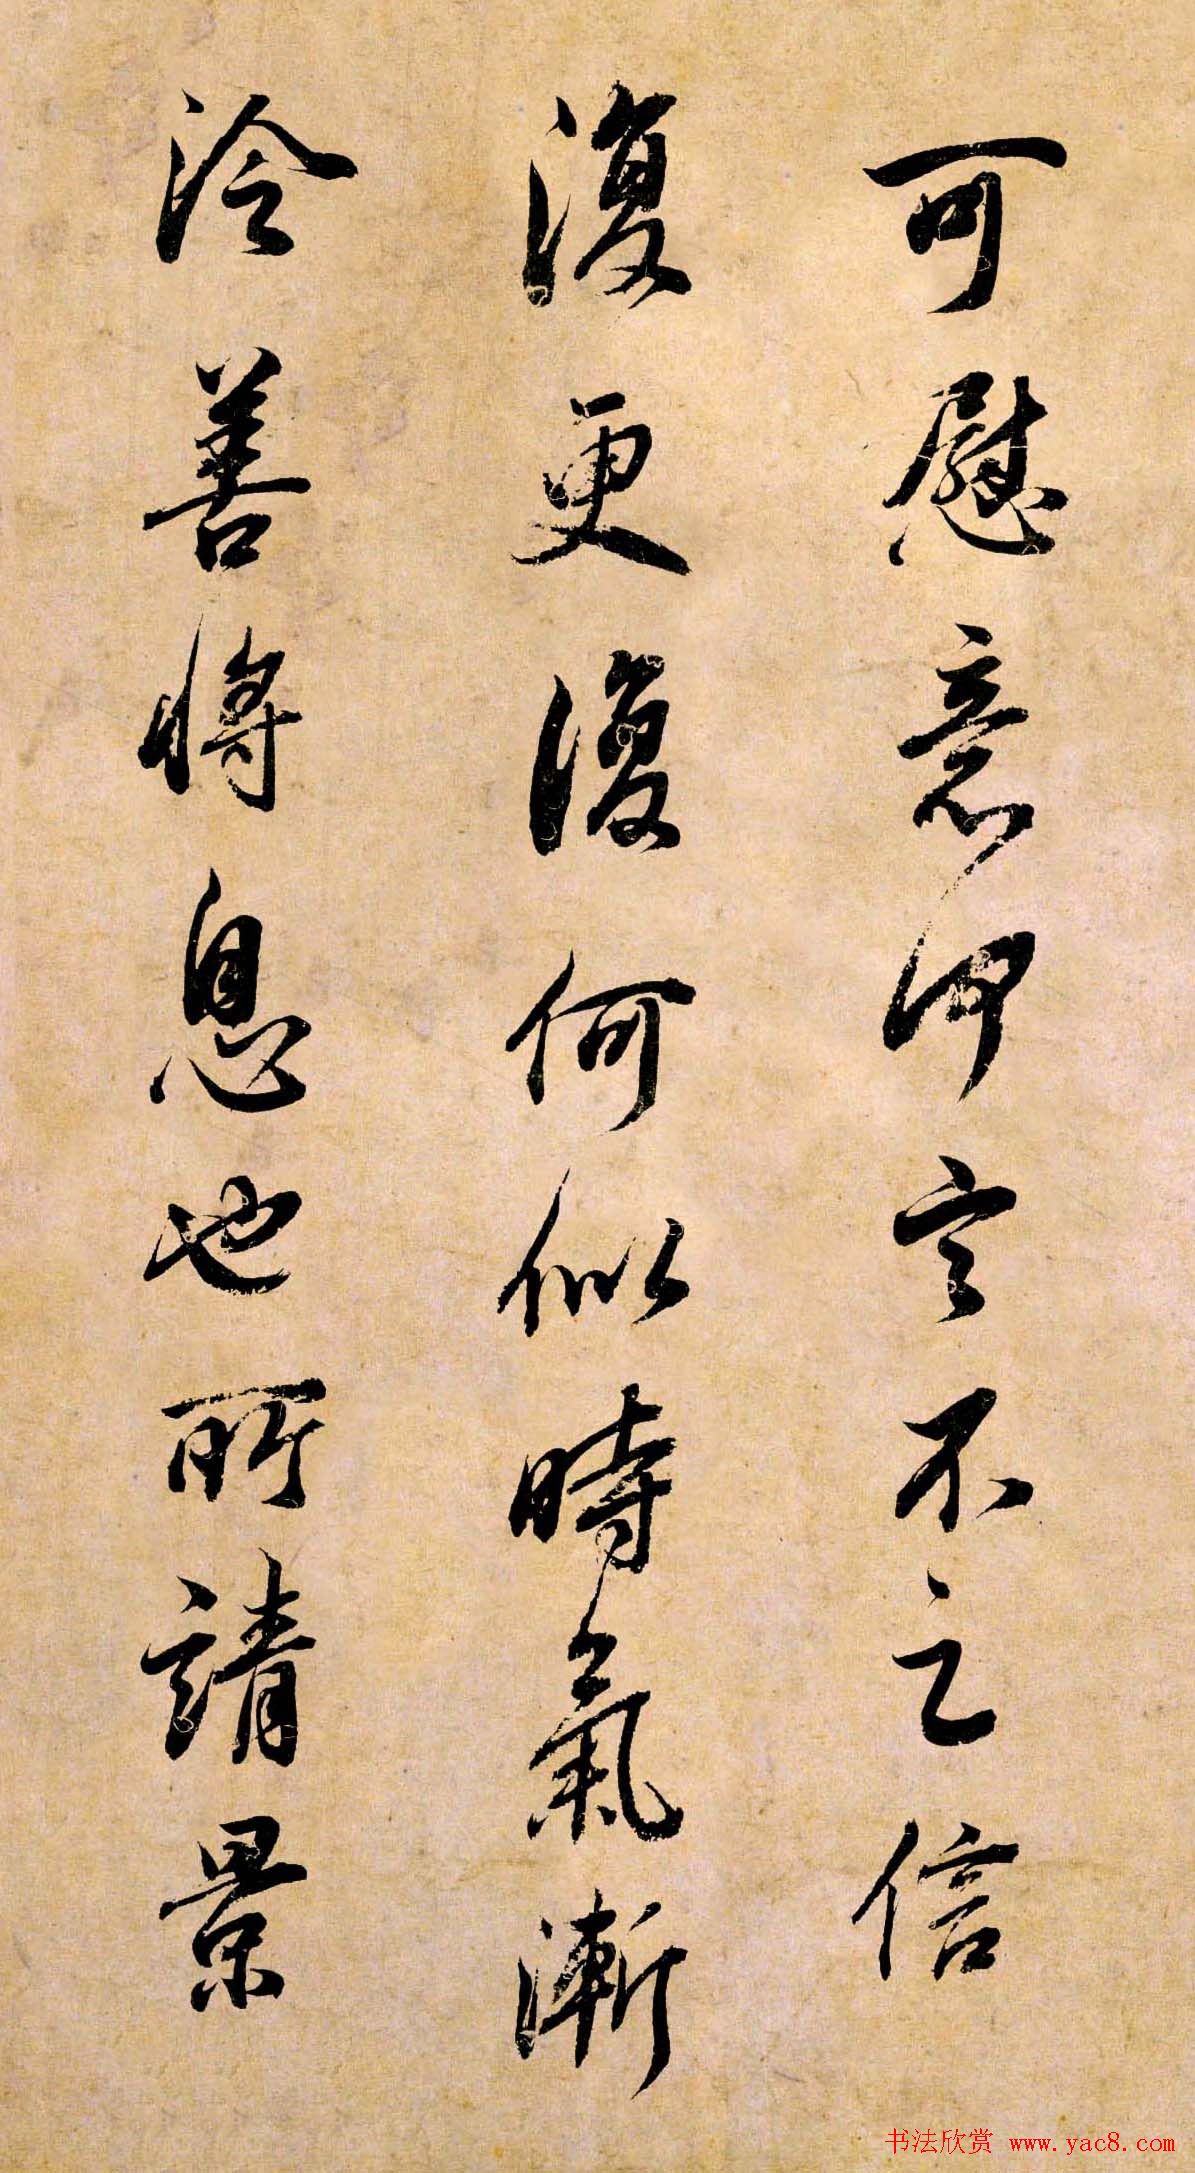 可慰意定不之信
復更復何似時氣漸
冷善將息也所請景
书法欣赏 www.yac8.com